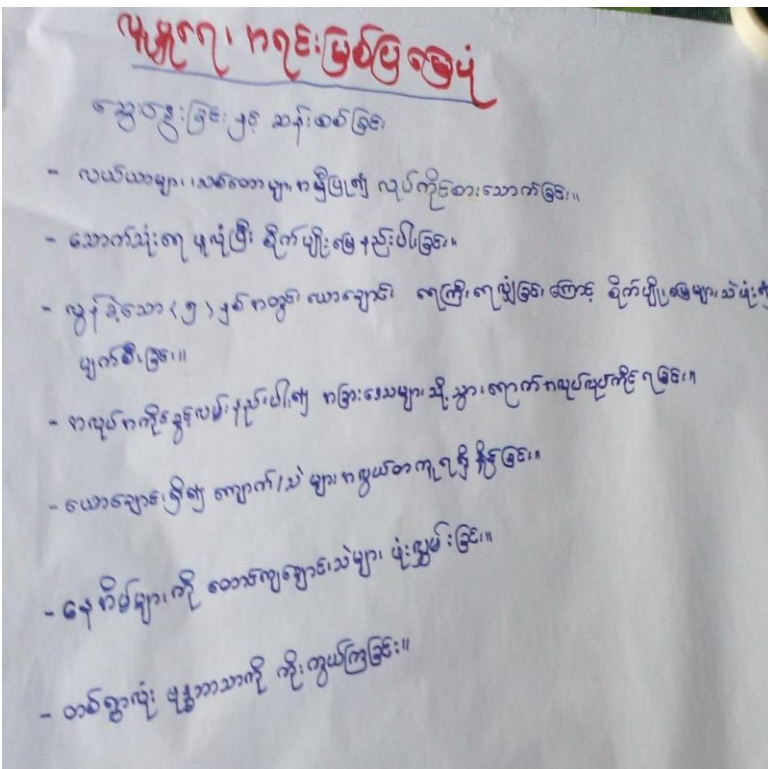 လူမှုရေး အရင်းမြစ်ပြ မြေပုံ
ဆွေးနွေးခြင်းနှင့် ဆန်းစစ်ခြင်း
- လယ်ယာများ၊ သစ်တောများ အမှီပြု၍ လုပ်ကိုင်စားသောက်ခြင်း။
- သောက်သုံးရေ ဖူလုံပြီး စိုက်ပျိုးမြေ နည်းပါးခြင်း။
- လွန်ခဲ့သော (၅) နှစ်အတွင်း ယောချောင်း ရေကြီးရေလျှံခြင်းကြောင့် စိုက်ပျိုးမြေများ သဲဖုံး၍
ပျက်စီးခြင်း။
- အလုပ်အကိုင်အခွင့်အလမ်း နည်းပါး၍ အခြားဒေသများသို့ သွားရောက်အလုပ်လုပ်ကိုင်ရခြင်း။
- ယောချောင်းရှိ၍ ကျောက်/သဲ များ အလွယ်တကူ ရရှိနိုင်ခြင်း။
- နေအိမ်များကို တောင်ကျချောင်းသဲများ ဖုံးလွှမ်းခြင်း။
- တစ်ရွာလုံး ဗုဒ္ဓဘာသာကို ကိုးကွယ်ကြခြင်း။